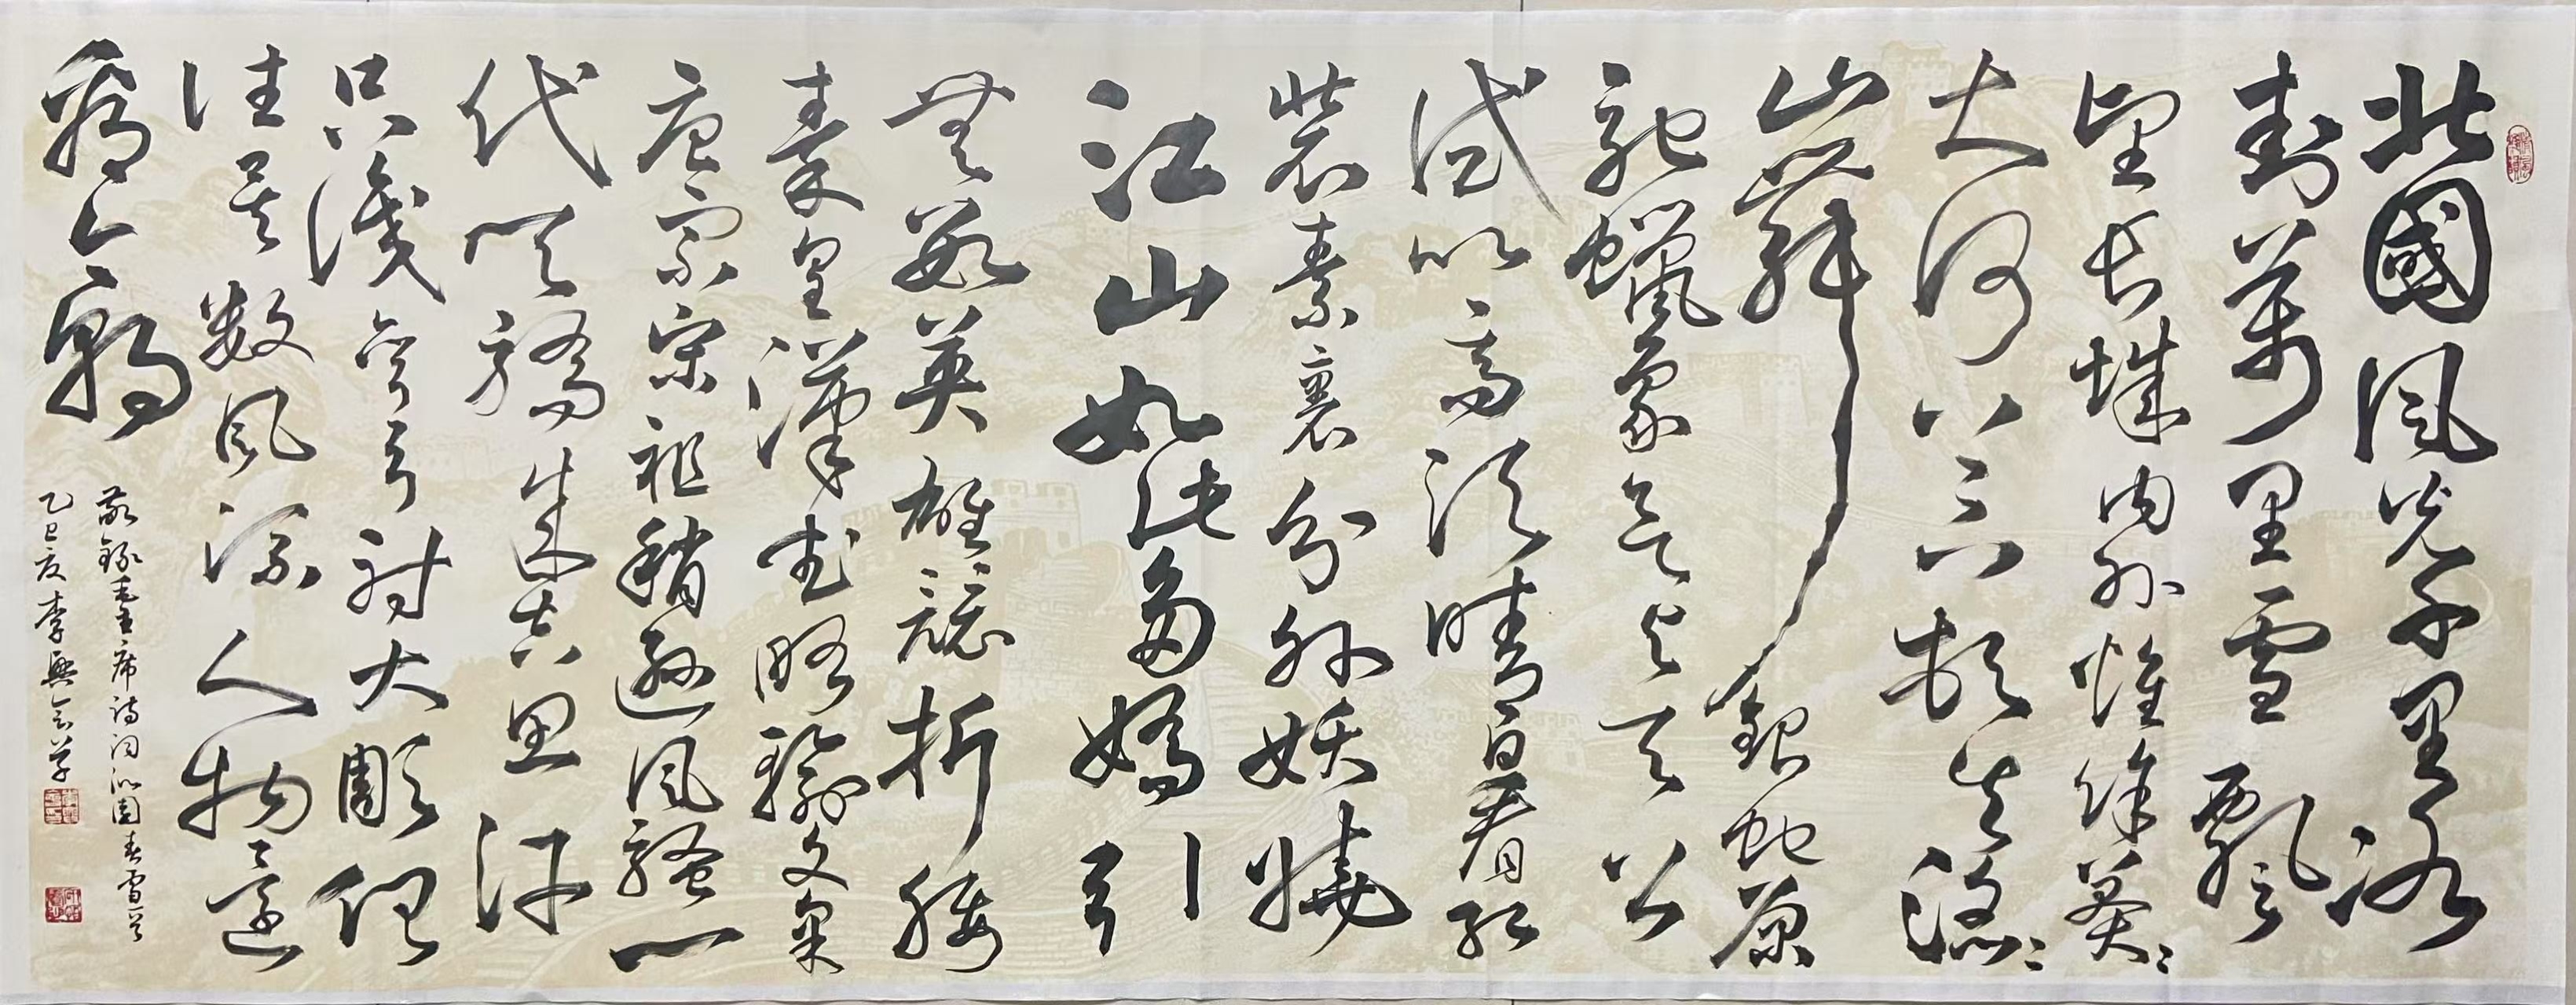 北國風光千里冰
封萬里雪飄
望長城内外惟餘莽〻
大河上下頓失滔〻
山舞銀蛇原
馳蠟象欲與天公
試比高須晴日看紅
裝素裹分外妖嬈
江山如此多嬌引
無數英雄競折腰
秦皇漢武略輸文采
唐宗宋祖稍遜風騷一
代天驕成吉思汗
只識彎弓射大雕俱
往矣數風流人物還
看今朝
敬錄毛主席詩詞沁園春雪一首
乙巳夏李興草